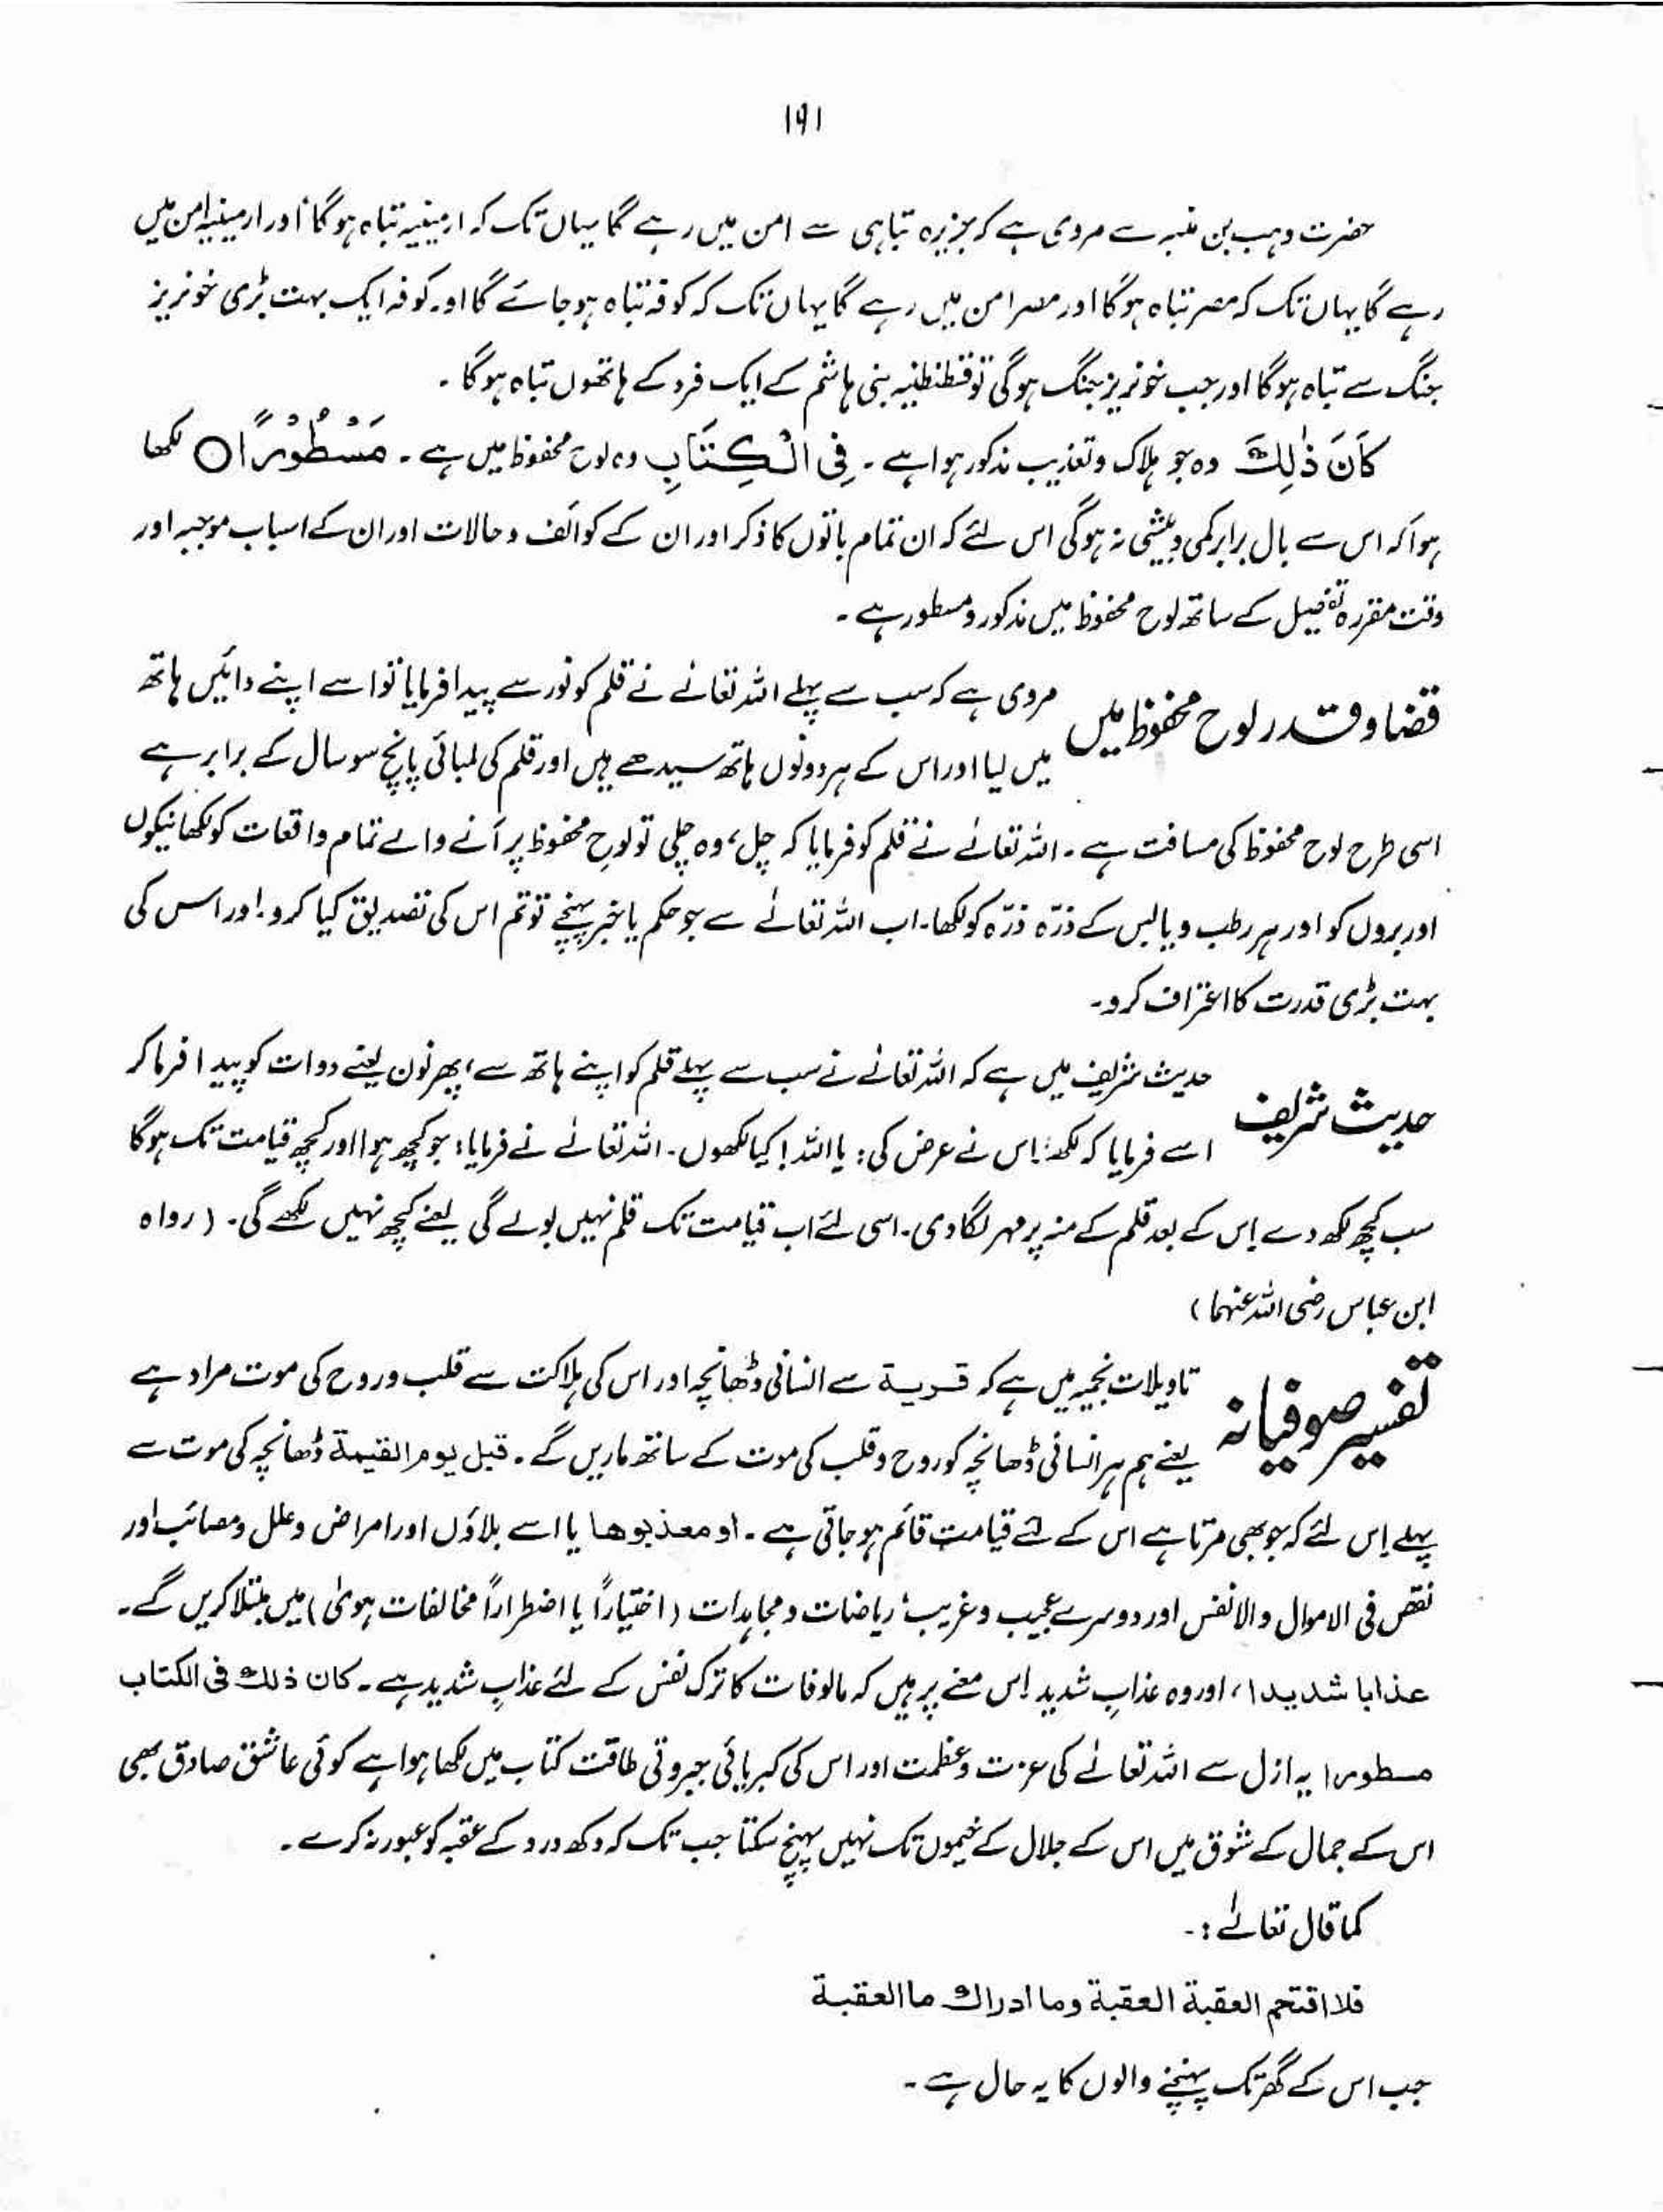 ۱۹۱
حضرت وہب بن منبہ سے مروی ہے کہ جزیرہ تباہی سے امن میں رہے گا یہاں تک کہ ارمینیہ تباہ ہوگا اور ارمینیہ امن میں
رہے گا یہاں تک کہ مصر تباہ ہوگا اور مصر امن میں رہے گا یہاں تک کہ کوفہ تباہ ہو جائے گا اور کوفہ ایک بہت بڑی خونریز
جنگ سے تباہ ہوگا اور جب خونریز جنگ ہوگی تو قسطنطنیہ بنی ہاشم کے ایک فرد کے ہاتھوں تباہ ہوگا ۔
كَانَ ذٰلِكَ وہ جو ہلاک و تعذیب مذکور ہوا ہے ۔ فِی الْكِتٰبِ وہ لوح محفوظ میں ہے ۔ مَسْطُوْرًا ○ لکھا
ہوا کہ اس سے بال برابر کمی و بیشی نہ ہوگی اس لئے کہ ان تمام باتوں کا ذکر اور ان کے کوائف و حالات اور ان کے اسباب موجبہ اور
وقت مقررہ تفصیل کے ساتھ لوح محفوظ میں مذکور و مسطور ہے ۔
قضا و قدر لوح محفوظ میں مروی ہے کہ سب سے پہلے اللہ تعالےٰ نے قلم کو نور سے پیدا فرمایا تو اسے اپنے دائیں ہاتھ
میں لیا اور اس کے ہر دونوں ہاتھ سیدھے ہیں اور قلم کی لمبائی پانچ سو سال کے برابر ہے
اسی طرح لوح محفوظ کی مسافت ہے ۔ اللہ تعالےٰ نے قلم کو فرمایا کہ چل، وہ چلی تو لوح محفوظ پر آنے والے تمام واقعات کو لکھا نیکوں
اور بروں کو اور ہر رطب و یابس کے ذرّہ ذرّہ کو لکھا۔ اب اللہ تعالےٰ سے جو حکم یا خبر پہنچے تو تم اس کی تصدیق کیا کرو! اور اس کی
بہت بڑی قدرت کا اعتراف کرو۔
حدیث شریف حدیث شریف میں ہے کہ اللہ تعالےٰ نے سب سے پہلے قلم کو اپنے ہاتھ سے، پھر نون یعنے دوات کو پیدا فرما کر
اسے فرمایا کہ لکھ! اس نے عرض کی: یا اللہ! کیا لکھوں۔ اللہ تعالےٰ نے فرمایا: جو کچھ ہوا اور کچھ قیامت تک ہوگا
سب کچھ لکھ دے اس کے بعد قلم کے منہ پر مہر لگا دی۔ اسی لئے اب قیامت تک قلم نہیں بولے گی یعنے کچھ نہیں لکھے گی۔ (رواہ
ابن عباس رضی اللہ عنہما)
تفسیر صوفیانہ تاویلات نجمیہ میں ہے کہ قرية سے انسانی ڈھانچہ اور اس کی ہلاکت سے قلب و روح کی موت مراد ہے
یعنے ہم ہر انسانی ڈھانچہ کو روح و قلب کی موت کے ساتھ ماریں گے ۔ قبل یوم القیمة ڈھانچہ کی موت سے
پہلے اس لئے کہ جو بھی مرتا ہے اس کے لئے قیامت قائم ہو جاتی ہے ۔ او معذبوها یا اسے بلاؤں اور امراض و علل و مصائب اور
نقص فی الاموال والانفس اور دوسرے عجیب و غریب ریاضات و مجاہدات (اختیاراً یا اضطراراً مخالفات ہویٰ) میں مبتلا کریں گے۔
عذابا شدیدا، اور وہ عذاب شدید اس معنے پر ہیں کہ مالوفات کا ترک نفس کے لئے عذابِ شدید ہے ۔ کان ذلك فی الکتاب
مسطورا یہ ازل سے اللہ تعالےٰ کی عزت و عظمت اور اس کی کبریائی جبروتی طاقت کتاب میں لکھا ہوا ہے کوئی عاشق صادق بھی
اس کے جمال کے شوق میں اس کے جلال کے خیموں تک نہیں پہنچ سکتا جب تک کہ دکھ درد کے عقبہ کو عبور نہ کرے ۔
کما قال تعالےٰ :۔
فلا اقتحم العقبة العقبة وما ادراك ما العقبة
جب اس کے گھر تک پہنچنے والوں کا یہ حال ہے ۔